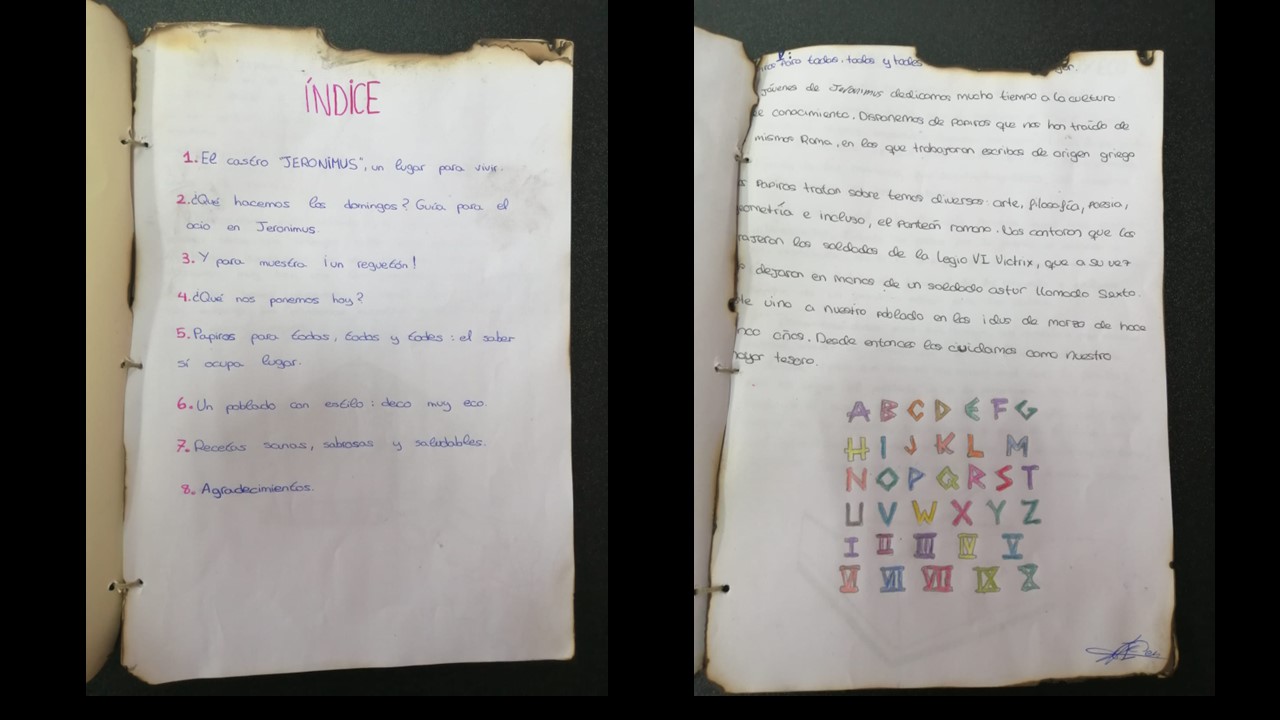 ÍNDICE
1. El castro "JERONIMUS", un lugar para vivir.
2. ¿Qué hacemos los domingos? Guía para el
ocio en Jeronimus.
3. Y para muestra ¡un reguetón!
4. ¿Qué nos ponemos hoy?
5. Papiros para todas, todos y todes: el saber
sí ocupa lugar.
6. Un poblado con estilo: deco muy eco.
7. Recetas sanas, sabrosas y saludables.
8. Agradecimientos.
para todas, todos y todes
jóvenes de Jeronimus dedicamos mucho tiempo a la cultura
conocimiento. Disponemos de papiros que nos han traído de
misma Roma, en los que trabajaron escribas de origen griego
papiros tratan sobre temas diversos: arte, filosofía, poesía,
ometría e incluso, el panteón romano. Nos contaron que los
rajeron los soldados de la Legio VI Victrix, que a su vez
dejaron en manos de un soldado astur llamado Sexto.
vino a nuestro poblado en los idus de marzo de hace
nco años. Desde entonces los cuidamos como nuestro
ayor tesoro.
A B C D E F G
H I J K L M
N O P Q R S T
U V W X Y Z
I II III IV V
VI VII VIII IX X